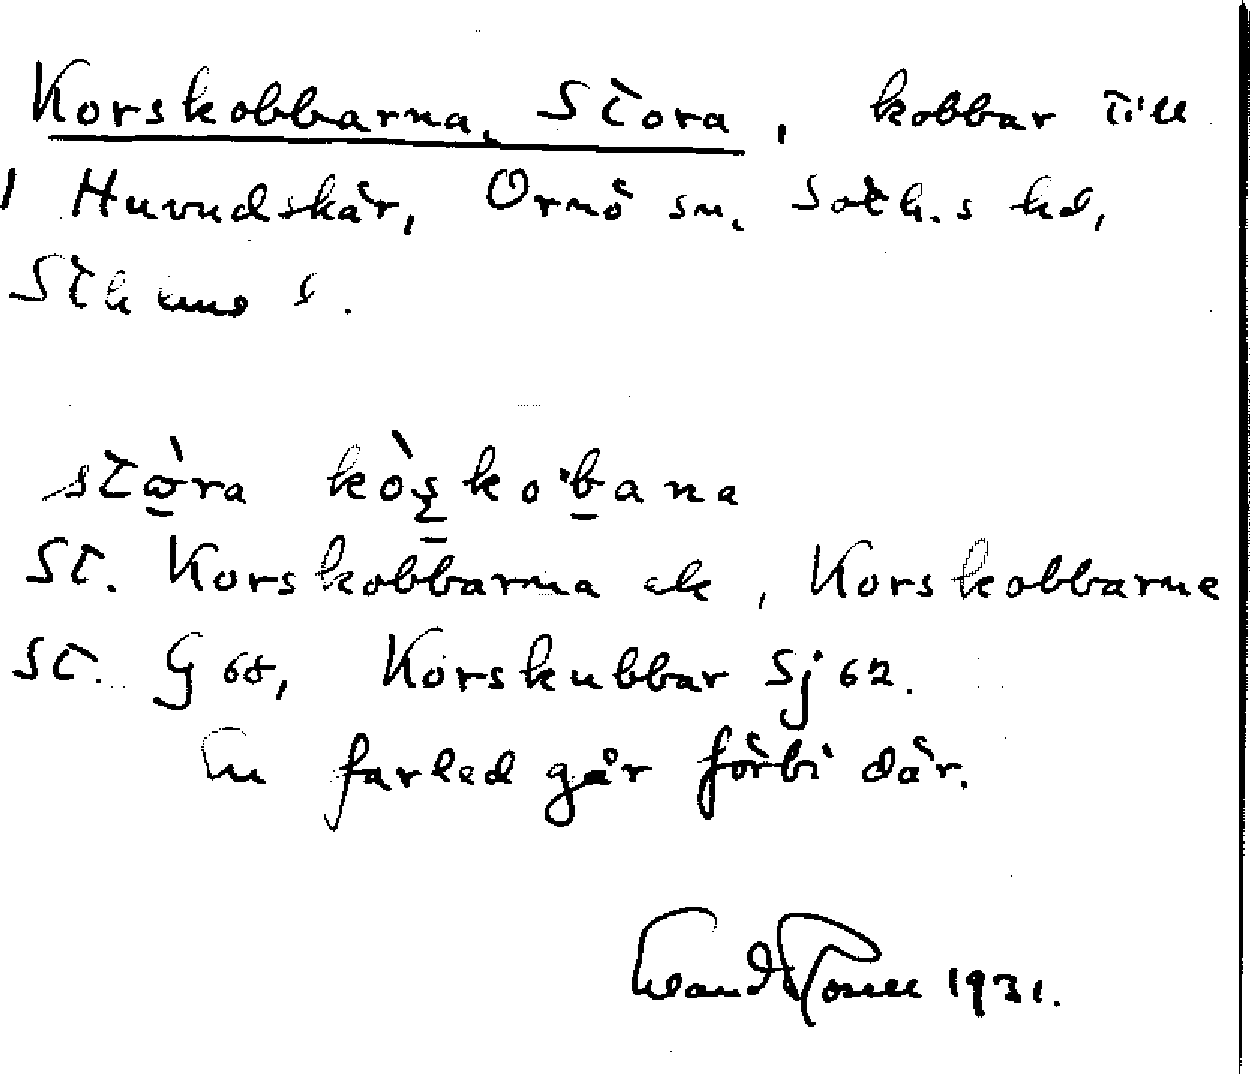 Korskobbarna, Stora, kobbar till
1 Huvudskär, Ornö sn, Soth.s hd,
Sthlms l.
stɷ̀ra kòʂko'bana
St. Korskobbarna ek, Korskobbarne
St. G 68, Korskubbar Sj 62.
En farled går förbi där.
1931.